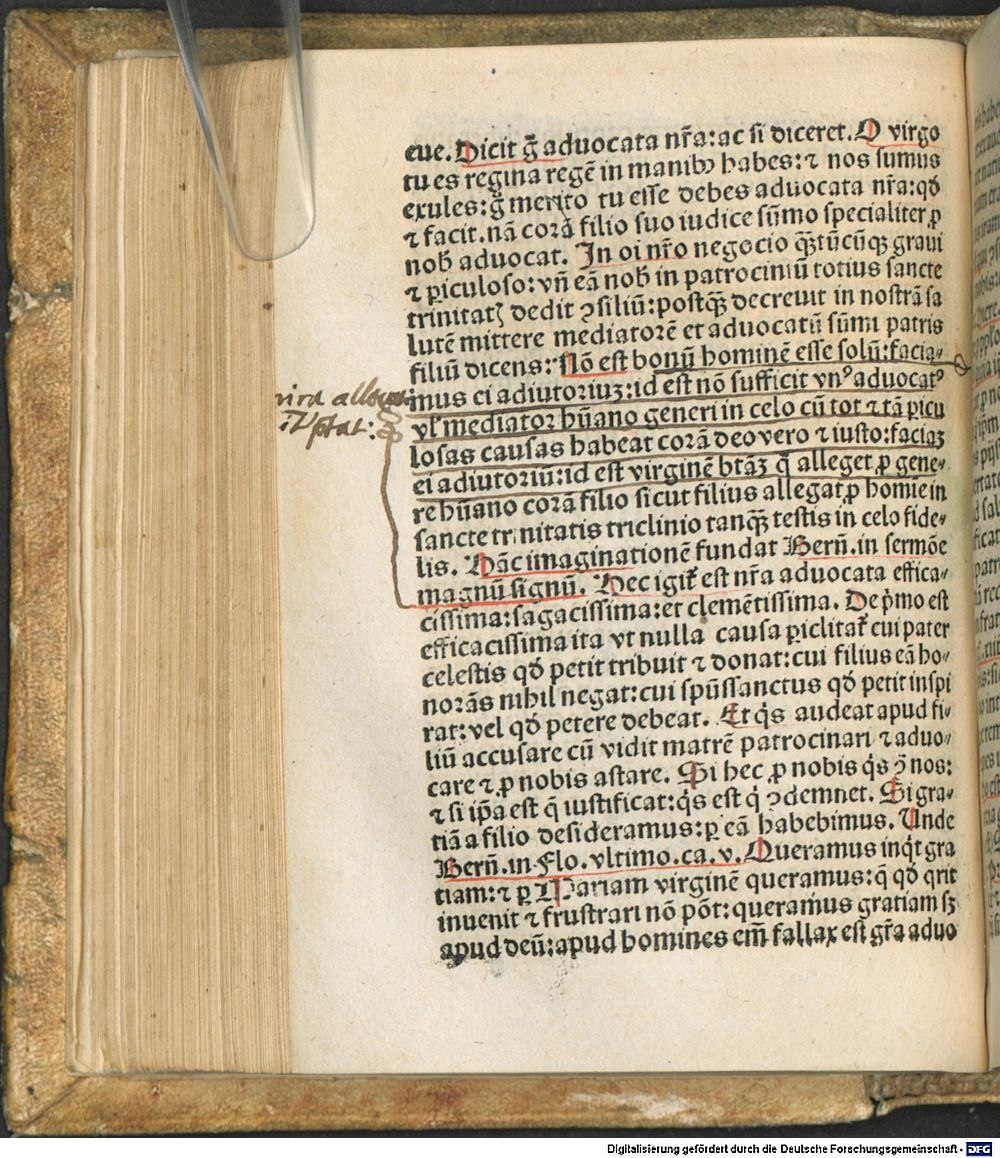 eue. Dicit g̃ aduocata nr̃a: ac si diceret. O virgo
tu es regina regẽ in manibꝰ habes: ⁊ nos sumus
exules: g̃ merito tu esse debes aduocata nr̃a: qđ
⁊ facit. nã corã filio suo iudice sũmo specialiter ꝓ
nob̃ aduocat. In oi nr̃o negocio qꝫtũcũqꝫ graui
⁊ ꝑiculoso: vñ eã nob̃ in patrociniũ totius sancte
trinitatꝭ dedit ꝯsiliũ: postqꝫ decreuit in nostrã sa
lutẽ mittere mediatorẽ et aduocatũ sũmi patris
filiũ dicens: Nõ est bonũ hominẽ esse solũ: facia⸗
mus ei adiutoriuꝫ: id est nõ sufficit vnꝰ aduocatꝰ
vl̃ mediator hũano generi in celo cũ tot ⁊ tã ꝑicu
losas causas habeat corã deo vero ⁊ iusto: faciaꝫ
ei adiutoriũ: id est virginẽ btãꝫ q̃ alleget ꝓ gene⸗
re hũano corã filio sicut filius allegat ꝓ homie in
sancte trinitatis triclinio tanqꝫ testis in celo fide⸗
lis. Hãc imaginationẽ fundat Berñ. in sermõe
magnũ signũ. Hec igit̃ est nr̃a aduocata effica⸗
cissima: sagacissima: et clemẽtissima. De p̃mo est
efficacissima ita vt nulla causa ꝑiclitat̃ cui pater
celestis qđ petit tribuit ⁊ donat: cui filius eã ho⸗
norãs nihil negat: cui spũssanctus qđ petit inspi
rat: vel qđ petere debeat. Et q̇s audeat apud fi⸗
liũ accusare cũ vidit matrẽ patrocinari ⁊ aduo⸗
care ⁊ ꝓ nobis astare. Si hec ꝓ nobis q̇s ꝯ̃ nos:
⁊ si ip̃a est q̃ iustificat: q̇s est q̇ ꝯdemnet. Si gra⸗
tiã a filio desideramus: ꝑ eã habebimus. Unde
Berñ. in Flo. vltimo. ca. v. Queramus inq̇t gra
tiam: ⁊ ꝑ Mariam virginẽ queramus: q̃ qđ q̃rit
inuenit ⁊ frustrari nõ põt: queramus gratiam sꝫ
apud deũ: apud homines em̃ fallax est gr̃a aduo
Digitalisierung gefördert durch die Deutsche Forschungsgemeinschaft - DFG